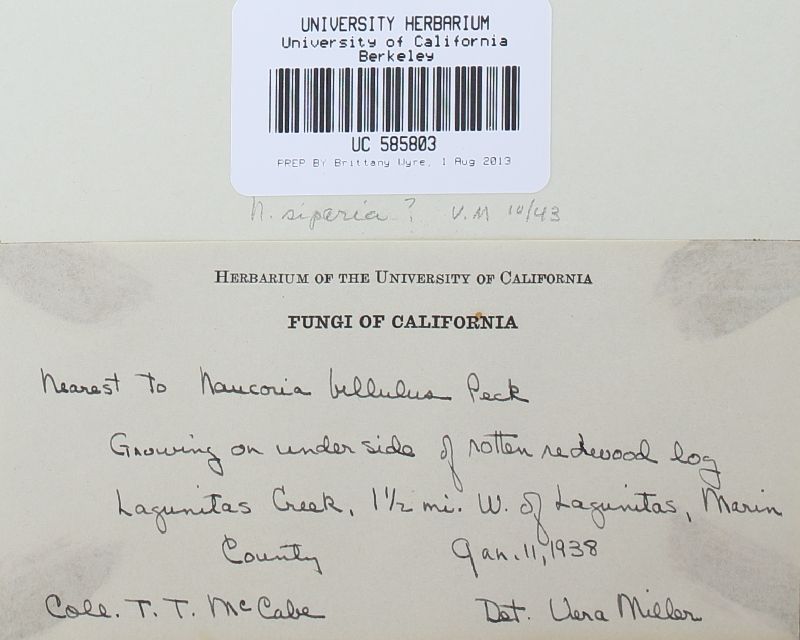 UNIVERSITY HERBARIUM
University of California
Berkeley
UC 585803
PREP BY Brittany Wyre, 1 Aug 2013
N. siparia ? V.M 10/43
HERBARIUM OF THE UNIVERSITY OF CALIFORNIA
FUNGI OF CALIFORNIA
Nearest to Naucoria bellulus Peck
Growing on under side of rotten redwood log
Lagunitas Creek, 1½ mi. W. of Lagunitas, Marin
County Jan. 11, 1938
Coll. T. T. McCabe Det. Vera Miller